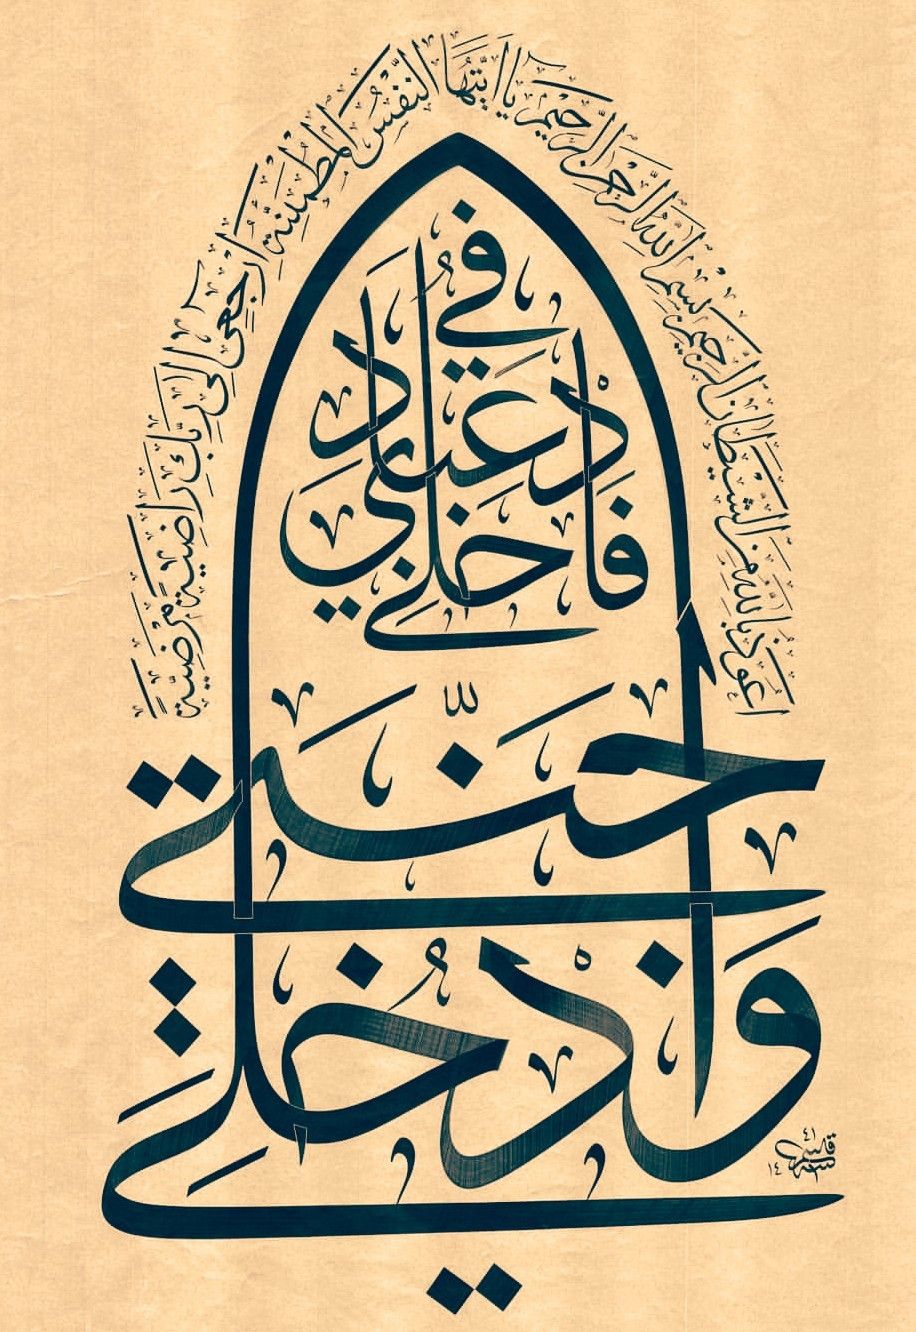 اَعُوذُ بِاللّٰهِ مِنَ الشَّيْطَانِ الرَّجِيْمِ بِسْمِ اللّٰهِ الرَّحْمٰنِ الرَّحِيْمِ يَا اَيَّتُهَا النَّفْسُ الْمُطْمَئِنَّةُ ارْجِعِي اِلٰى رَبِّكِ رَاضِيَةً مَرْضِيَّةً
فَادْخُلِي فِي عِبَادِي
وَادْخُلِي جَنَّتِي
١٤٤١